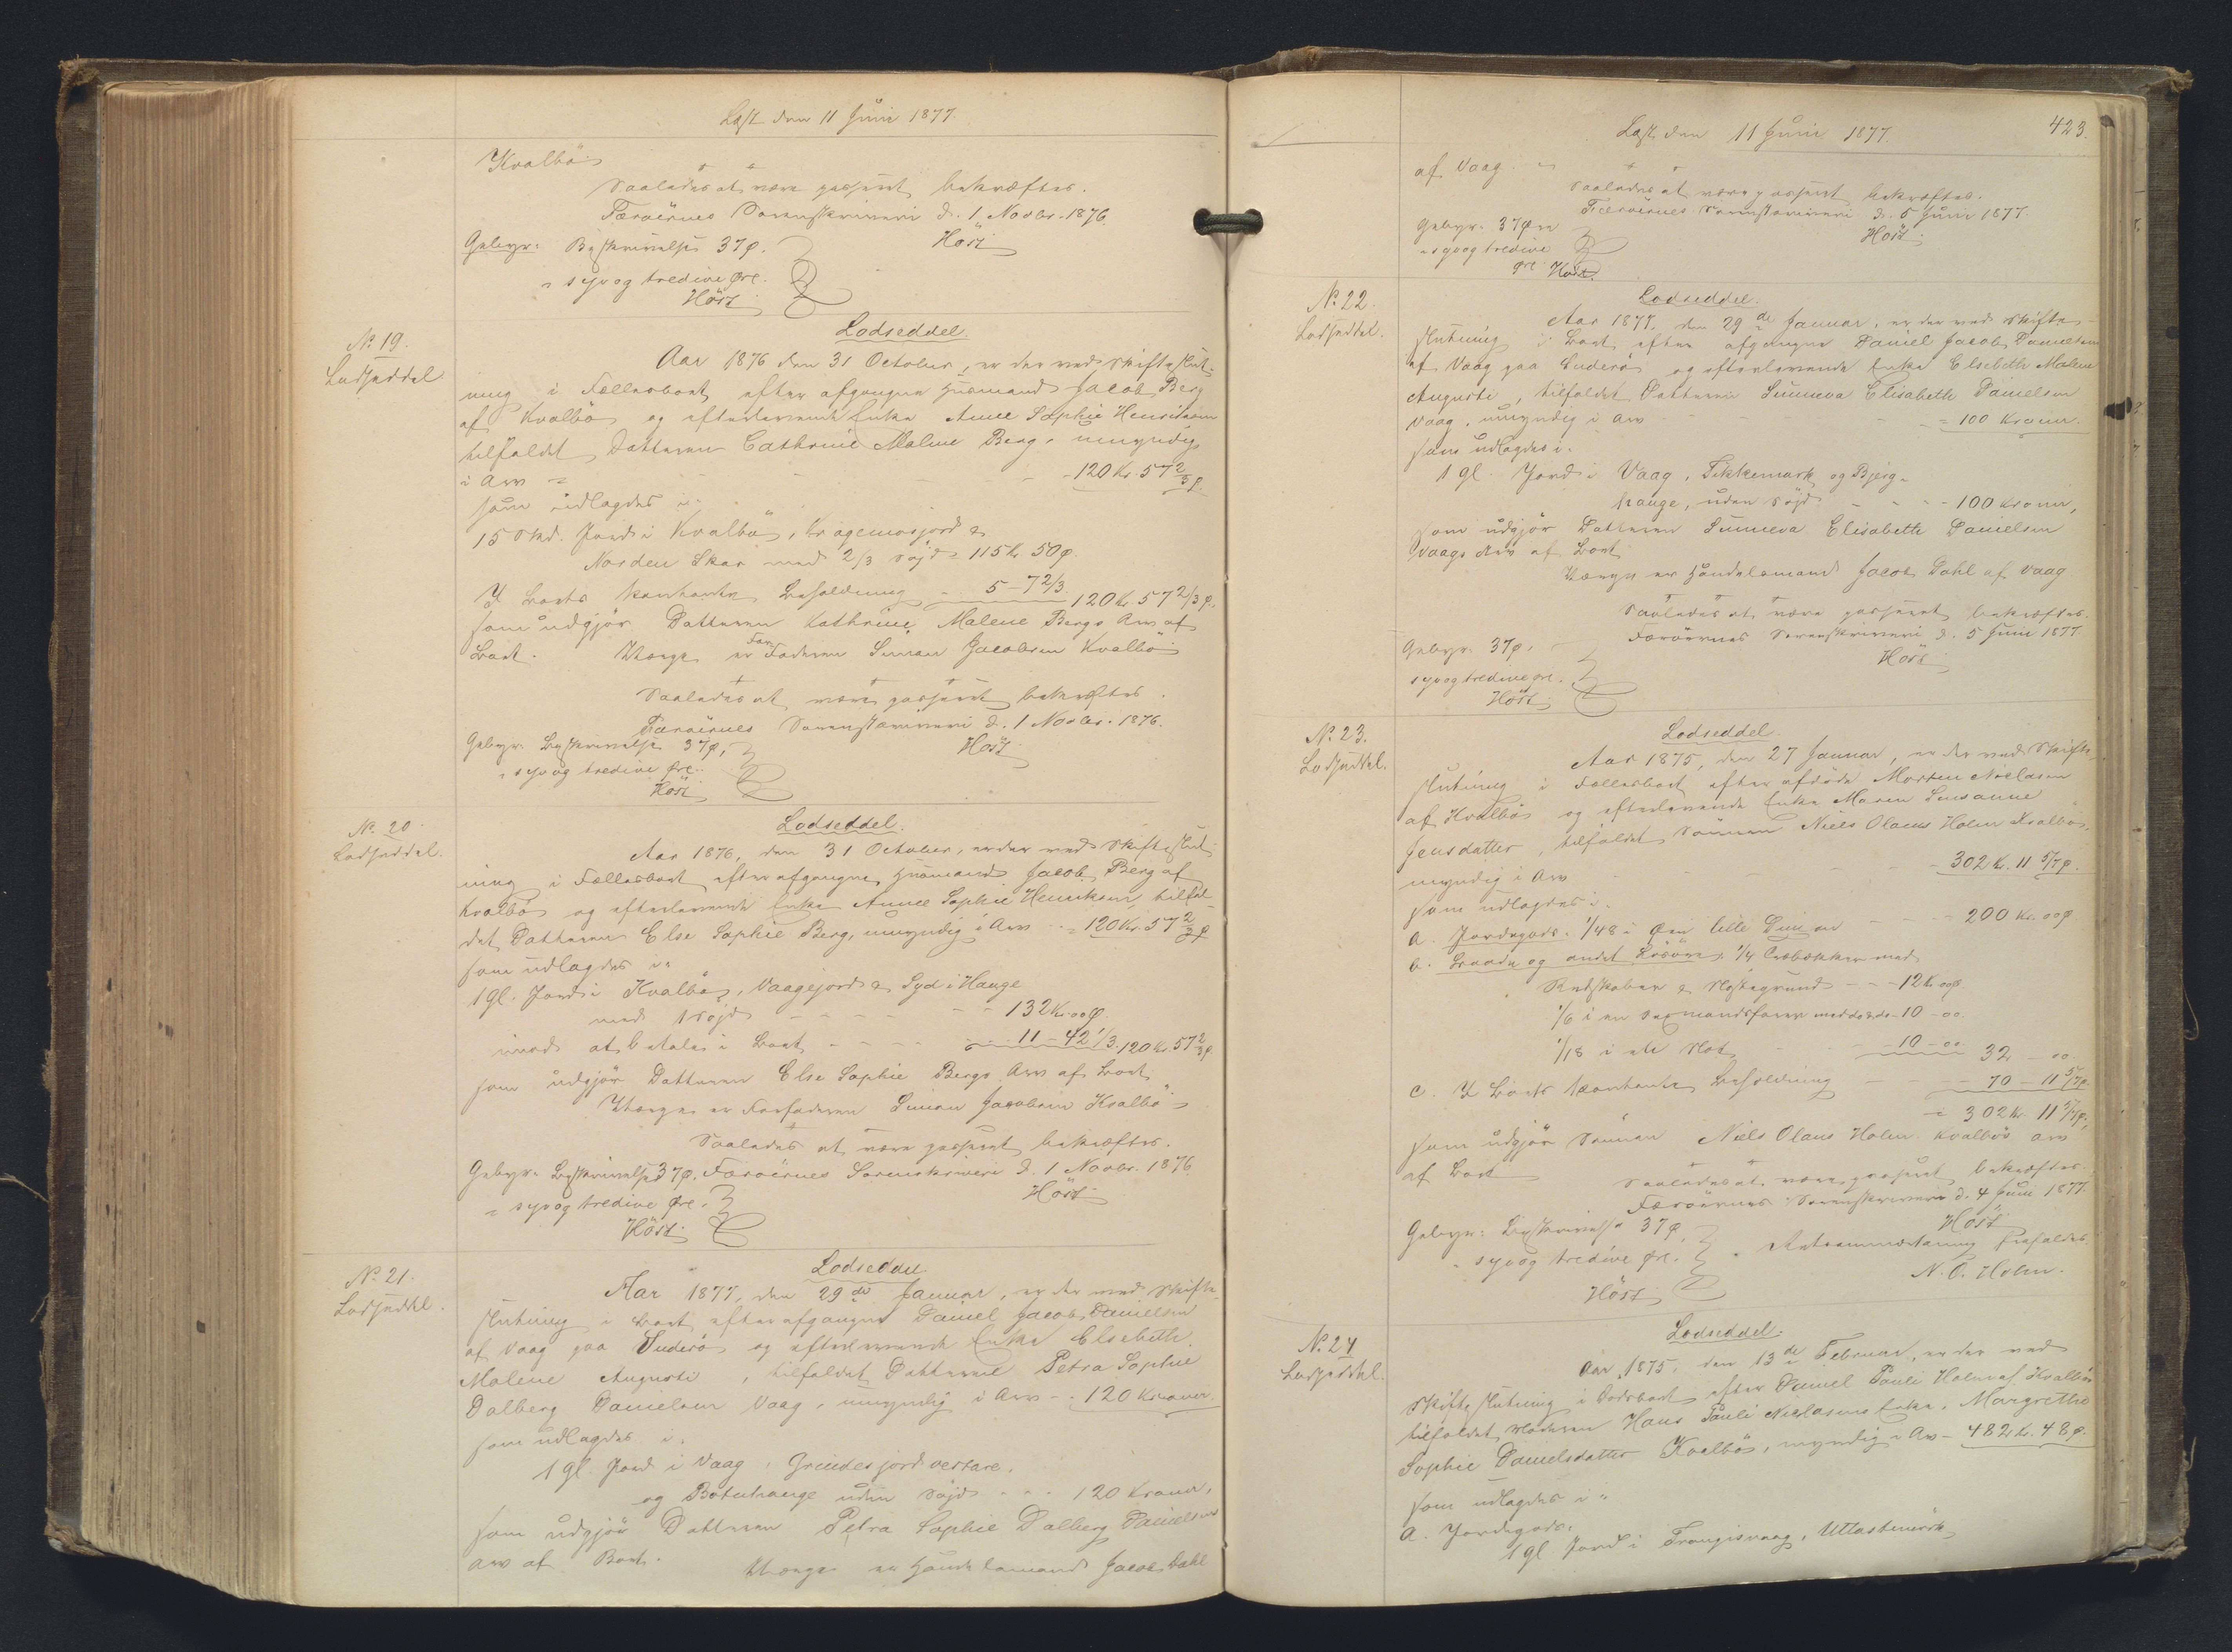 Læst den 11 Juni 1877.
Kvalbö.
Saaledes at være passeret bekræftes.
Færöernes Sorenskriveri d. 1 Novbr. 1876.
Höst
Gebyr: Beskrivelse 37 Ø.
= syv og tredive Øre.
Höst
No. 19.
Lodseddel
Lodseddel
Aar 1876 den 31 October, er der ved Skifteslut-
ning i Fællesboet efter afgangne Huusmand Jacob Berg
af Kvalbö og efterlevende Enke Anne Sophie Henriksen
tilfaldet Datteren Cathrine Malene Berg, umyndig
i Arv = - - - 120 Kr. 57 2/3 Ø.
som udlagdes i:
15 Skd. Jord i Kvalbö, Kragemosjord &
Norden Skar med 2/3 Söjd = 115 Kr. 50 Ø.
I Boets contante Beholdning - 5 - 7 2/3 120 Kr. 57 2/3 Ø.
som udgjör Datteren Kathrine Malene Bergs Arv af
Boet. Værge er Farfaderen Simon Jacobsen Kvalbö
Saaledes at være passeret bekræftes.
Færöernes Sorenskriveri d. 1 Novbr. 1876.
Höst
Gebyr: Beskrivelse 37 Ø.
= syv og tredive Øre.
Höst
No. 20.
Lodseddel.
Lodseddel.
Aar 1876, den 31 October, er der ved Skifteslut-
ning i Fællesboet efter afgangne Huusmand Jacob Berg af
Kvalbö og efterlevende Enke Anne Sophie Henriksen, tilfal-
det Datteren Else Sophie Berg, umyndig i Arv - = 120 Kr. 57 2/3 Ø
som udlagdes i:
1 Gl. Jord i Kvalbö, Vaagejord & Syd i Hauge
med 1 Söjd - - - - 132 Kr. 00 Ø.
imod at betale i Boet - - - 11 - 42 1/3 120 Kr. 57 2/3 Ø
som udgjör Datteren Else Sophie Bergs Arv af Boet
Værge er Farfaderen Simon Jacobsen Kvalbö
Saaledes at være passeret bekræftes.
Gebyr: Beskrivelse 37 Ø. Færöernes Sorenskriveri d. 1 Novbr. 1876
= syv og tredive Øre. Höst
Höst
No. 21.
Lodseddel.
Lodseddel
Aar 1877, den 29de Januar, er der ved Skifte-
slutning i Boet efter afgangne Daniel Jacob Danielsen
af Vaag paa Suderö og efterlevende Enke Elsebeth
Malene Augusti, tilfaldet Datteren Petra Sophie
Dalberg Danielsen Vaag, umyndig i Arv - - 120 Kroner.
som udlagdes i:
1 Gl. Jord i Vaag, Grindesjord vestare,
og Botnhauge uden Söjd - - - 120 Kroner,
som udgjör Datteren Petra Sophie Dalberg Danielsens
Arv af Boet.
Værge er Handelsmand Jacob Dahl
423.
Læst den 11 Juni 1877.
af Vaag
Saaledes at være passeret bekræftes.
Færöernes Sorenskriveri d. 5 Juni 1877.
Höst
Gebyr: 37 Ø =
= syv og tredive
Øre Höst.
No. 22.
Lodseddel.
Lodseddel.
Aar 1877, den 29de Januar, er der ved Skifte-
slutning i Boet efter afgangne Daniel Jacob Danielsen
af Vaag paa Suderö og efterlevende Enke Elsebeth Malene
Augusti, tilfaldet Datteren Sunneva Elisabeth Danielsen
Vaag, umyndig i Arv - - = 100 Kroner.
som udlagdes i:
1 Gl. Jord i Vaag, Tikkemark og Bjerg-
hauge, uden Söjd - - - 100 Kroner,
som udgjör Datteren Sunneva Elisabeth Danielsen
Vaags Arv af Boet
Værge er Handelsmand Jacob Dahl af Vaag
Saaledes at være passeret bekræftes
Færöernes Sorenskriveri d. 5 Juni 1877.
Höst
Gebyr: 37 Ø.
syv og tredive Øre.
Höst
No. 23.
Lodseddel.
Lodseddel.
Aar 1875, den 27 Januar, er der ved Skifte-
slutning i Fællesboet efter afdöde Morten Nielsen
af Kvalbö og efterlevende Enke Maren Susanne
Jensdatter, tilfaldet Sönnen Niels Olaus Holm Kvalbö,
myndig i Arv - - - 302 Kr. 11 5/7 Ø.
som udlagdes i:
a. Jordegods. 1/48 i Øen lille Dimon - - 200 Kr. 00 Ø
b. Baade og andet Lösöre, 1/4 med
Redskaber & - - 12 Kr. 00 Ø
1/6 i en Sexmandsfarer med do & do - 10 - 00
1/18 i en Not - 10 - 00 32 - 00
c. I Boets contante Beholdning - - 70 - 11 5/7 Ø.
= 302 Kr. 11 5/7 Ø,
som udgjör Sönnen Niels Olaus Holm Kvalbös Arv
af Boet
Saaledes at være passeret bekræftes
Færöernes Sorenskriveri d. 4 Juni 1877.
Höst
Gebyr: Beskrivelse 37 Ø
= syv og tredive Øre.
Höst
N. O. Holm.
No. 24
Lodseddel.
Lodseddel.
Aar 1875, den 13de Februar, er der ved
Skifteslutning i Dödsboet efter Daniel Pauli Holm af Kvalbö
tilfaldet Moderen Hans Pauli Nielsens Enke, Margrethe
Sophie Danielsdatter Kvalbö, myndig i Arv - 482 Kr. 48 Ø.
som udlagdes i:
a. Jordegods:
1 Gl. Jord i Trangisvaag, Uttastumörk